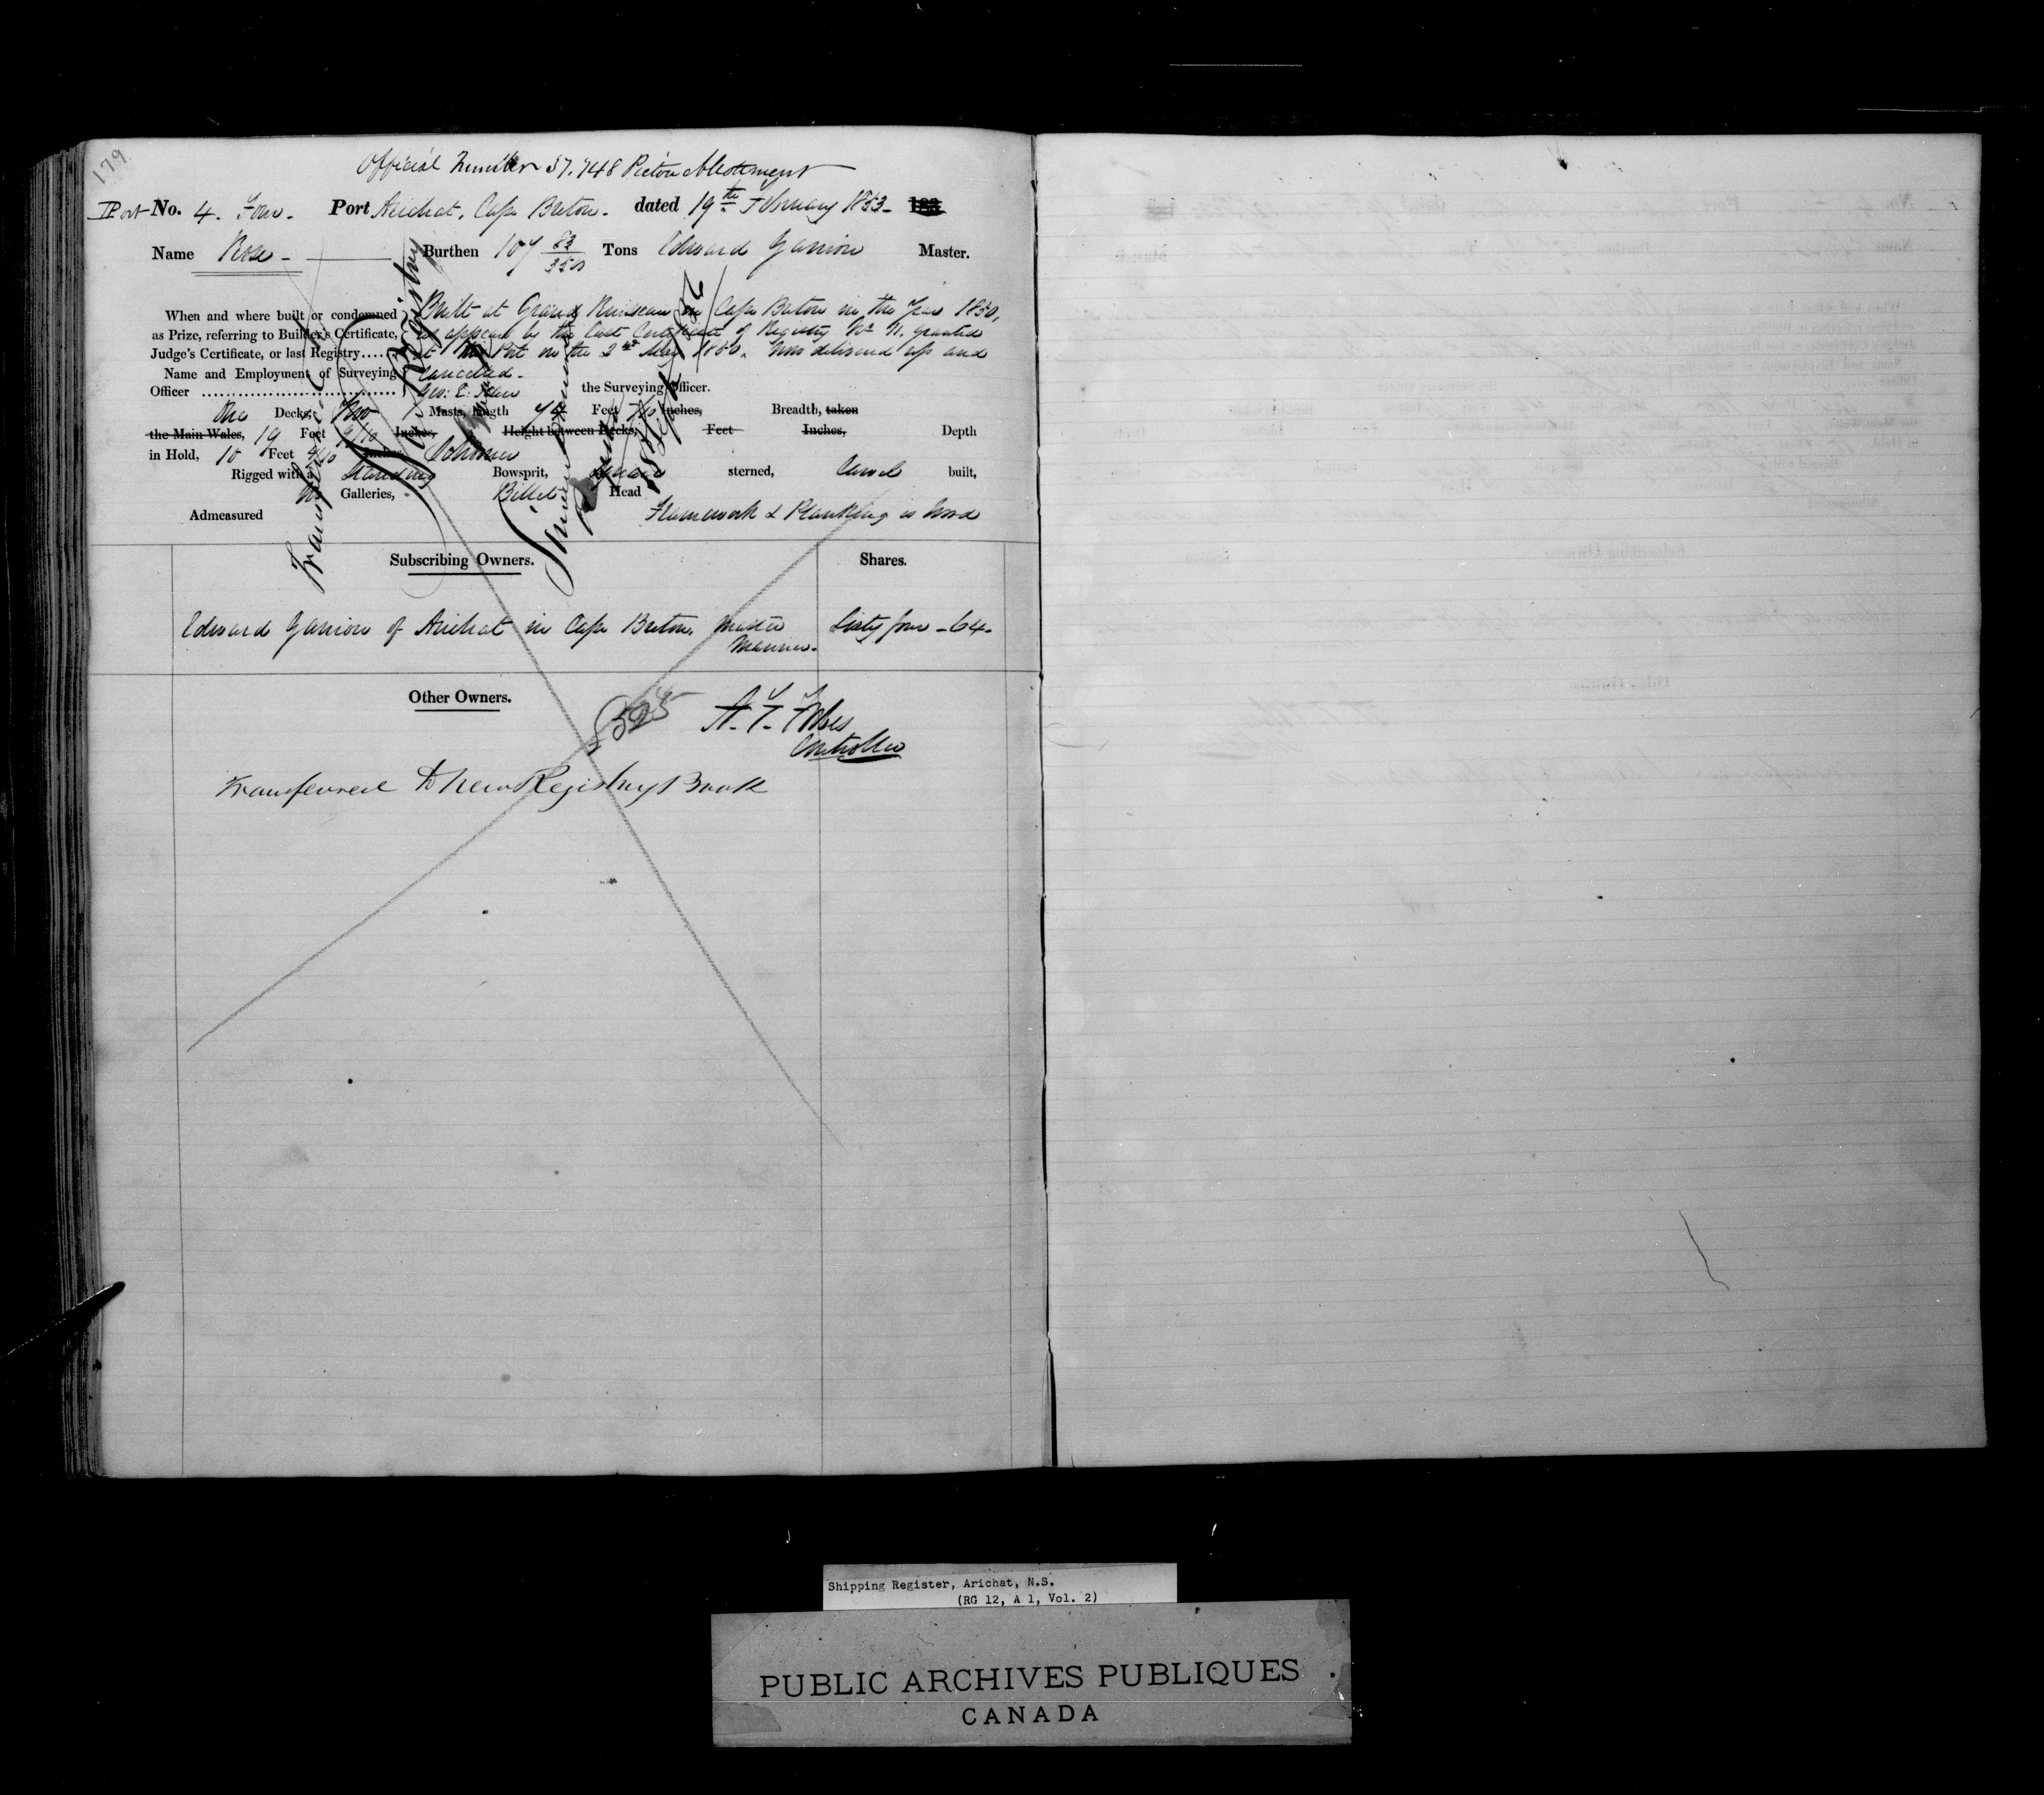 179
Official Number 37.748 Pictou Allotment
Port No. 4. Four. Port Arichat, Cape Breton. dated 19th February 1853. 183
Name Rose Burthen 107 Tons Edward Master.
When and where built or condemned Built at Grand in Cape Breton in the Year 1850,
as Prize, referring to Builder's Certificate, as appears by the last Certificate of Registry No. 11. granted
Judge's Certificate, or last Registry...... at this Port on the 2nd May 1850. Now delivered up and
Name and Employment of Surveying Cancelled.
Officer Geo: E: the Surveying Officer.
One Decks, Two Masts, length Feet Inches, Breadth, taken
the Main Wales, 19 Feet 9/10 Inches, Height between Decks, Feet Inches, Depth
in Hold, 10 Feet 4/10 Inches Schooner
Rigged with a Standing Bowsprit, Square sterned, Carvel built,
No Galleries, Billet Head
Admeasured Framework & Planking is Wood
Subscribing Owners. Shares.
Edward of Arichat in Cape Breton, Master Sixty four - 64 -
Mariner.
Other Owners.
Controller
Transferred to New Registry Book
Shipping Register, Arichat, N.S.
(RG 12, A 1, Vol. 2)
PUBLIC ARCHIVES PUBLIQUES
CANADA